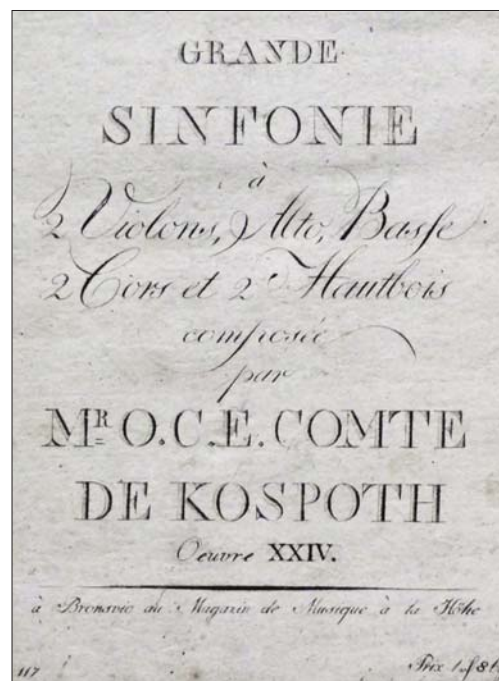 GRANDE
SINFONIE
à
2 Violons, Alto, Basse
2 Cors et 2 Hautbois
composée
par
MR O.C.E. COMTE
DE KOSPOTH
Oeuvre XXIV.
à Bronsvic au Magazin de Musique à la Höhe
117
Prix